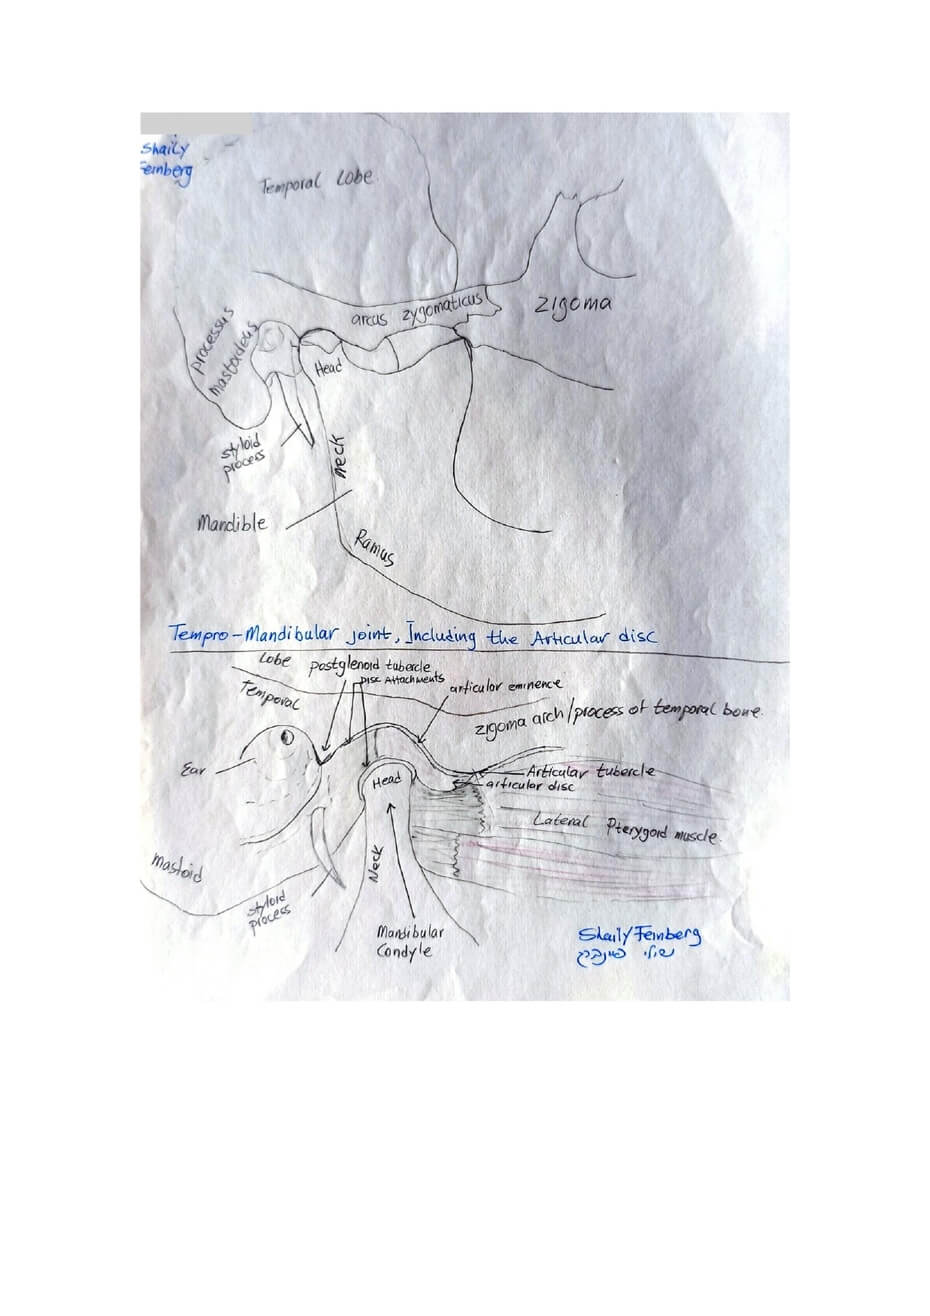 Shaily
Feinberg
Temporal Lobe
arcus zygomaticus
zigoma
processus
mastoideus
Head
styloid
process
neck
Mandible
Ramus
Tempro-Mandibular joint, Including the Articular disc
Lobe
Temporal
postglenoid tubercle
Disc Attachments
articular eminence
zigoma arch/process of temporal bone.
Ear
Head
Articular tubercle
articular disc
Lateral Pterygoid muscle.
Mastoid
Neck
styloid
process
Mandibular
Condyle
Shaily Feinberg
שילי פיינברג